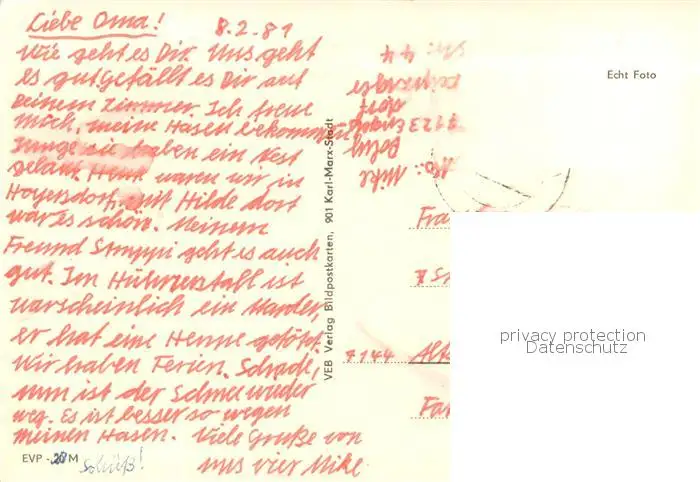 Liebe Oma! 8.2.81
Wie geht es Dir. Uns geht
es gut. gefällt es Dir auf
Deinem Zimmer. Ich freue
mich, meine Hasen bekommen
Junge sie haben ein Nest
gebaut. Heute waren wir in
Hoyersdorf, mit Hilde dort
war es schön. Meinem
Freund Struppi geht es auch
gut. Im Hühnerstall ist
warscheinlich ein Marder,
er hat eine Henne getötet.
Wir haben Ferien. Schade,
nun ist der Schnee wieder
weg. Es ist besser so wegen
meinen Hasen. Viele Grüße von
uns vier Mike
EVP - 20 M
VEB Verlag Bildpostkarten, 901 Karl-Marx-Stadt
Echt Foto
Abs: Mike
7123
Str: 44
Fra
7144 Alte
privacy protection
Datenschutz